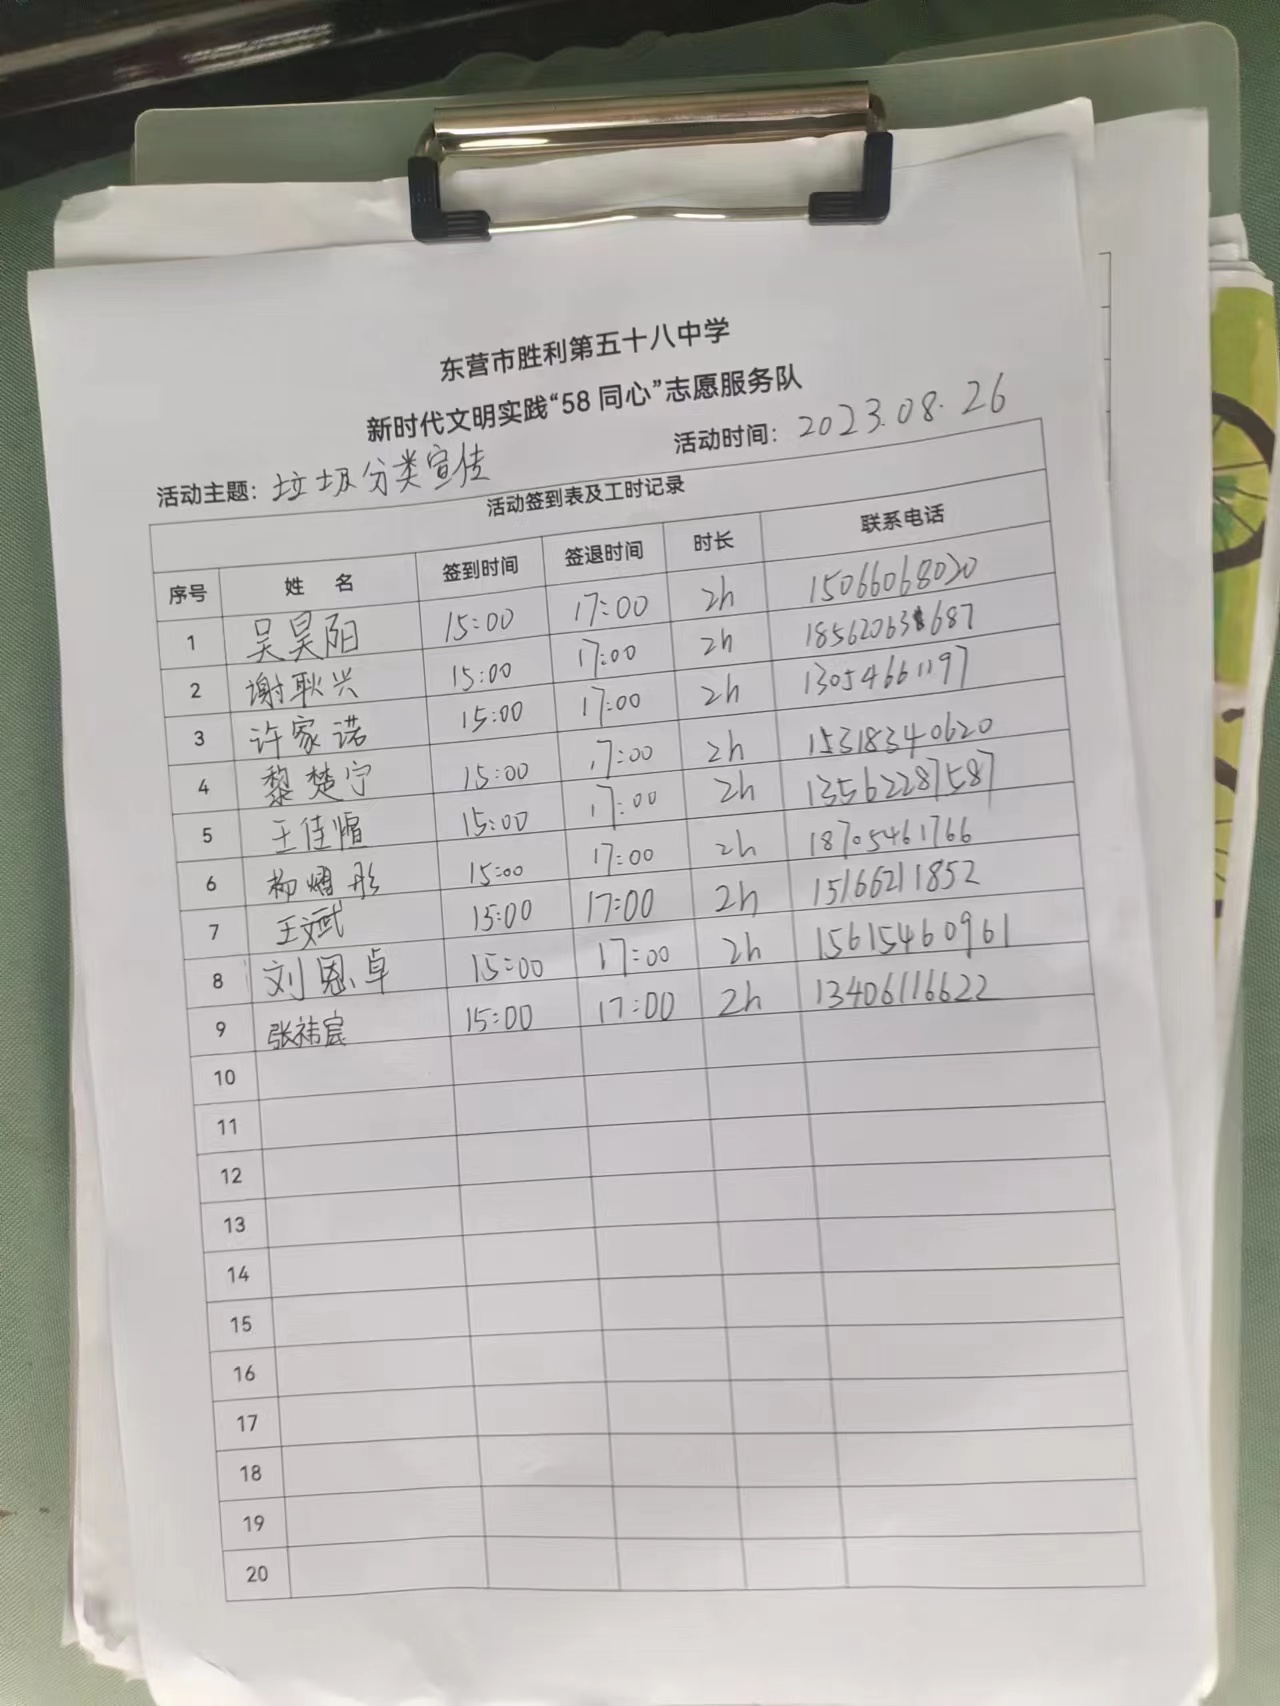 东营市胜利第五十八中学
新时代文明实践“58 同心”志愿服务队
活动主题：垃圾分类宣传 活动时间：2023.08.26
活动签到表及工时记录
序号 姓 名 签到时间 签退时间 时长 联系电话
1 吴昊阳 15:00 17:00 2h 15066068020
2 谢耿兴 15:00 17:00 2h
3 许家诺 15:00 17:00 2h 13054661197
4 黎楚宁 15:00 17:00 2h 15318340620
5 王佳 15:00 17:00 2h 13562287587
6 柳熠彤 15:00 17:00 2h 18705461766
7 王斌 15:00 17:00 2h 15166211852
8 刘恩卓 15:00 17:00 2h 15615460961
9 张祎宸 15:00 17:00 2h 13406116622
10
11
12
13
14
15
16
17
18
19
20